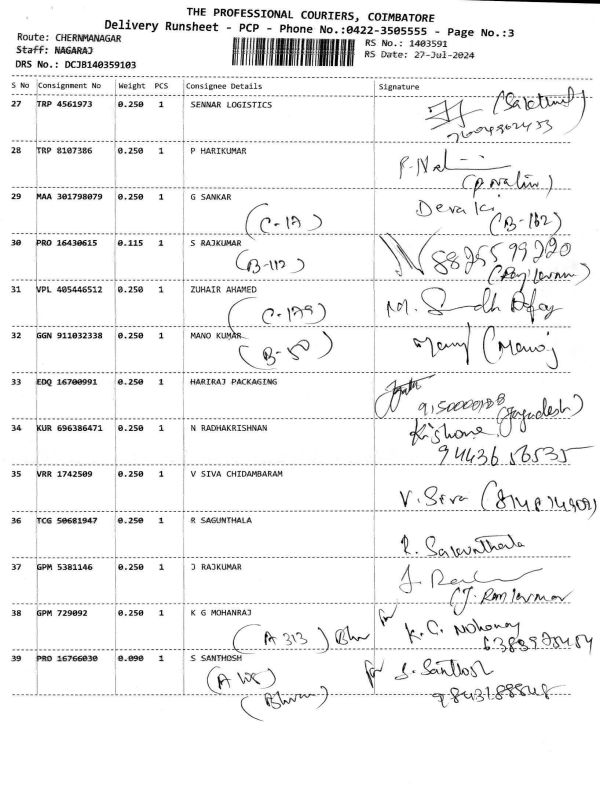 THE PROFESSIONAL COURIERS, COIMBATORE
Delivery Runsheet - PCP - Phone No.:0422-3505555 - Page No.:3
Route: CHERNMANAGAR
RS No.: 1403591
Staff: NAGARAJ
RS Date: 27-Jul-2024
DRS No.: DCJB140359103
S No Consignment No Weight PCS Consignee Details Signature
27 TRP 4561973 0.250 1 SENNAR LOGISTICS
28 TRP 8107386 0.250 1 P HARIKUMAR
29 MAA 301798079 0.250 1 G SANKAR Devaki
(C-17) (B-162)
30 PRO 16430615 0.115 1 S RAJKUMAR 8825599220
(B-112)
31 VPL 405446512 0.250 1 ZUHAIR AHAMED
(C-179)
32 GGN 911032338 0.250 1 MANO KUMAR (Manoj
(B-50)
33 EDQ 16700991 0.250 1 HARIRAJ PACKAGING
(Jagadesh)
34 KUR 696386471 0.250 1 N RADHAKRISHNAN Kishore
94436 56535
35 VRR 1742509 0.250 1 V SIVA CHIDAMBARAM
V. Siva
36 TCG 50681947 0.250 1 R SAGUNTHALA
R. Sakunthala
37 GPM 5381146 0.250 1 J RAJKUMAR
38 GPM 729092 0.250 1 K G MOHANRAJ for
(A 313)
39 PRO 16766030 0.090 1 S SANTHOSH for S. Santhosh